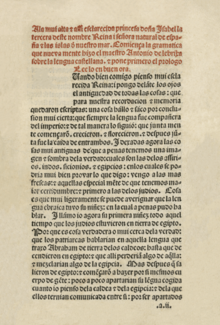 A la mui alta τ assi esclarecida princesa doña Isabel la
tercera deste nombre Reina i señora natural de españa
τ las islas de nuestro mar. Comiença la gramatica
que nueva mente hizo el maestro Antonio de lebrixa
sobre la lengua castellana. τ pone primero el prologo
Lee lo en buen ora.
Cuando bien comigo pienso mui escla
recida Reina: i pongo delante los ojos
el antiguedad de todas las cosas: que
para nuestra recordacion τ memoria
quedaron escriptas: una cosa hallo τ saco por conclusi
on mui cierta: que siempre la lengua fue compañera
del imperio: τ de tal manera lo siguió: que junta mente
començaron. crecieron. τ florecieron. τ despues junta
fue la caida de entrambos. I dexadas agora las co
sas mui antiguas de que a penas tenemos una
imagen τ sombra de la verdad: cuales son las delos assirios.
indos. sicionios. τ egipcios: enlos cuales se podria
mui bien provar lo que digo: vengo a las mas
frescas: τ aquellas especial mente de que tenemos ma
ior certidumbre: τ primero a las delos judios. Cosa
es que mui ligera mente se puede averiguar que la len
gua ebraica tuvo su niñez: en la cual a penas pudo ha
blar. I llamo io agora su primera niñez todo aquel
tiempo que los judios estuvieron en tierra de egipto.
Por que es cosa verdadera o mui cerca dela verdad:
que los patriarcas hablarian en aquella lengua que
traxo Abraham de tierra delos caldeos: hasta que de
cendieron en egipto: τ que alli perderian algo de aquella:
τ mezclarian algo dela egipcia. Mas despues que sa
lieron de egipto: τ començaron a hazer por si mesmos cu
erpo de gente: poco a poco apartarian su lengua cogida
cuanto io pienso dela caldea τ dela egipcia: τ dela que
ellos ternian comunicada entre si: por ser apartados
a.ii.